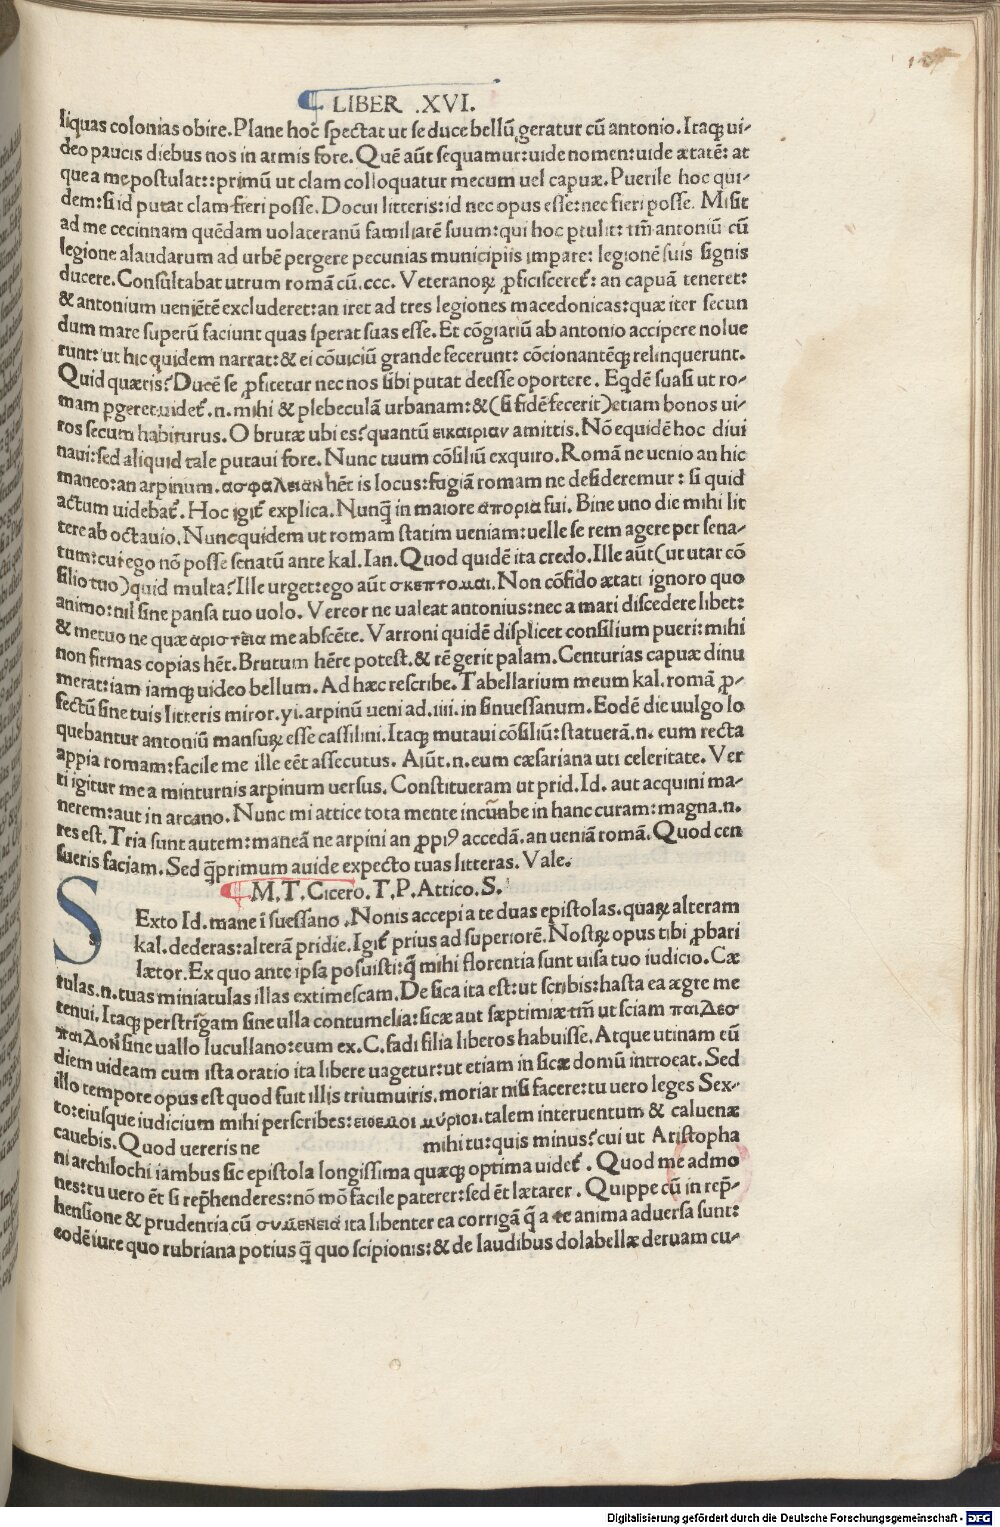 LIBER .XVI.
liquas colonias obire. Plane hoc spectat ut se duce bellū geratur cū antonio. Itaqꝫ ui-
deo paucis diebus nos in armis fore. Quē aūt sequamur: uide nomen: uide ætatē: at
que a me postulat: : primū ut clam colloquatur mecum uel capuæ. Puerile hoc qui-
dem: si id putat clam fieri posse. Docui litteris: id nec opus esse: nec fieri posse. Misit
ad me cecinnam quēdam uolateranū familiarē suum: qui hoc ꝑtulit: tm̄ antoniū cū
legione alaudarum ad urbē pergere pecunias municipiis imꝑare: legionē suis signis
ducere. Consultabat utrum romā cū .ccc. Veteranoꝝ ꝓficisceret᷑: an capuā teneret:
& antonium ueniētē excluderet: an iret ad tres legiones macedonicas: quæ iter secun
dum mare superū faciunt quas sperat suas esse. Et cōgiariū ab antonio accipere nolue
runt: ut hic quidem narrat: & ei cōuiciū grande fecerunt: cōcionantēqꝫ relinquerunt.
Quid quæris? Ducē se ꝓfitetur nec nos sibi putat deesse oportere. Eqdē suasi ut ro-
mam ꝑgeret: uidet᷑ .n. mihi & plebeculā urbanam: & (si fidē fecerit) etiam bonos ui-
ros secum habiturus. O brutæ ubi es? quantū εικαιριαν amittis. Nō equidē hoc diui
naui: sed aliquid tale putaui fore. Nunc tuum cōsiliū exquiro. Romā ne uenio an hic
maneo: an arpinum. ασφαλειαν hēt is locus: fugiā romam ne desideremur: si quid
actum uidebat᷑. Hoc igit᷑ explica. Nunq̄ in maiore απορια fui. Bine uno die mihi lit
tere ab octauio. Nunc quidem ut romam statim ueniam: uelle se rem agere per sena-
tum: cui ego nō posse senatū ante kal. Ian. Quod quidē ita credo. Ille aūt (ut utar cō
silio tuo) quid multa? Ille urget: ego aūt σκεπτομαι. Non cōfido ætati ignoro quo
animo: nil sine pansa tuo uolo. Vereor ne ualeat antonius: nec a mari discedere libet:
& metuo ne quæ αριστεια me abscēte. Varroni quidē displicet consilium pueri: mihi
non firmas copias hēt. Brutum hēre potest. & rē gerit palam. Centurias capuæ dinu
merat: iam iamqꝫ uideo bellum. Ad hæc rescribe. Tabellarium meum kal. romā ꝓ-
fectū sine tuis litteris miror. yi. arpinū ueni ad .iiii. in sinuessanum. Eodē die uulgo lo
quebantur antoniū mansuꝝ esse cassilini. Itaqꝫ mutaui cōsiliū: statuerā .n. eum recta
appia romam: facile me ille eēt assecutus. Aiūt .n. eum cæsariana uti celeritate. Ver
ti igitur me a minturnis arpinum uersus. Constitueram ut prid. Id. aut acquini ma-
nerem: aut in arcano. Nunc mi attice tota mente incūnbe in hanc curam: magna .n.
res est. Tria sunt autem: maneā ne arpini an ꝓpiꝰ accedā. an ueniā romā. Quod cen
sueris faciam. Sed q̄primum auide expecto tuas litteras. Vale.
M. T. Cicero. T. P. Attico. S.
S Exto Id. mane ī suessano. Nonis accepi a te duas epistolas. quaꝝ alteram
kal. dederas: alterā pridie. Igit᷑ prius ad superiorē. Nostꝝ opus tibi ꝓbari
lætor. Ex quo ante ipsa posuisti: q̄ mihi florentia sunt uisa tuo iudicio. Cæ
tulas .n. tuas miniatulas illas extimescam. De sica ita est: ut scribis: hasta ea ægre me
tenui. Itaqꝫ perstrīgam sine ulla contumelia: sicæ aut sæptimiæ tm̄ ut sciam παιδεσ
παιδον sine uallo lucullano: eum ex .C. fadi filia liberos habuisse. Atque utinam eū
diem uideam cum ista oratio ita libere uagetur: ut etiam in sicæ domū introeat. Sed
illo tempore opus est quod fuit illis triumuiris. moriar nisi facere: tu uero leges Sex-
to: eiusque iudicium mihi perscribes: εισεμοι μύριοι. talem interuentum & caluenæ
cauebis. Quod uereris ne mihi tu: quis minus? cui ut Aristopha
ni archilochi iambus sic epistola longissima quæqꝫ optima uidet᷑. Quod me admo
nes: tu uero ēt si rep̄henderes: nō mō facile paterer: sed ēt lætarer. Quippe cū in rep̄-
hensione & prudentia cū συμενεια ita libenter ea corrigā q̄ a te anima aduersa sunt:
eodē iure quo rubriana potius q̄ quo scipionis: & de laudibus dolabellæ deruam cu-
Digitalisierung gefördert durch die Deutsche Forschungsgemeinschaft - DFG